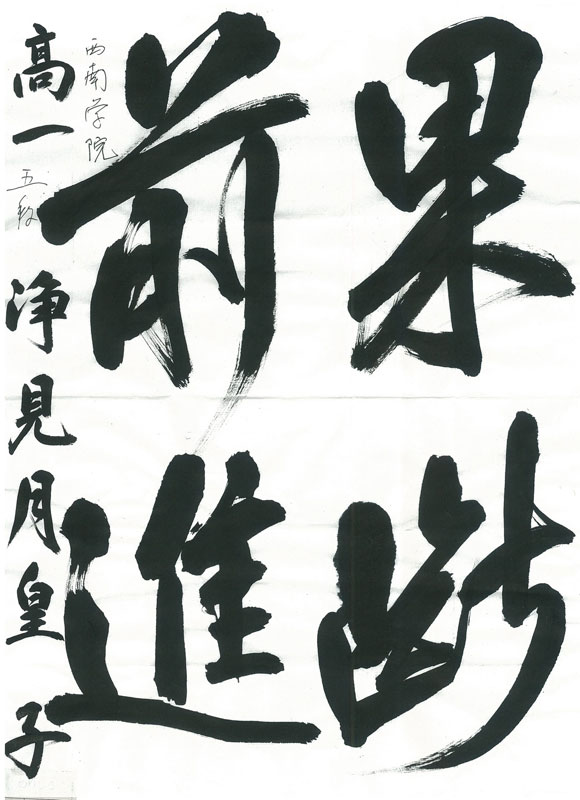 果断
前進
西南学院
高一 五段 浄見月皇子